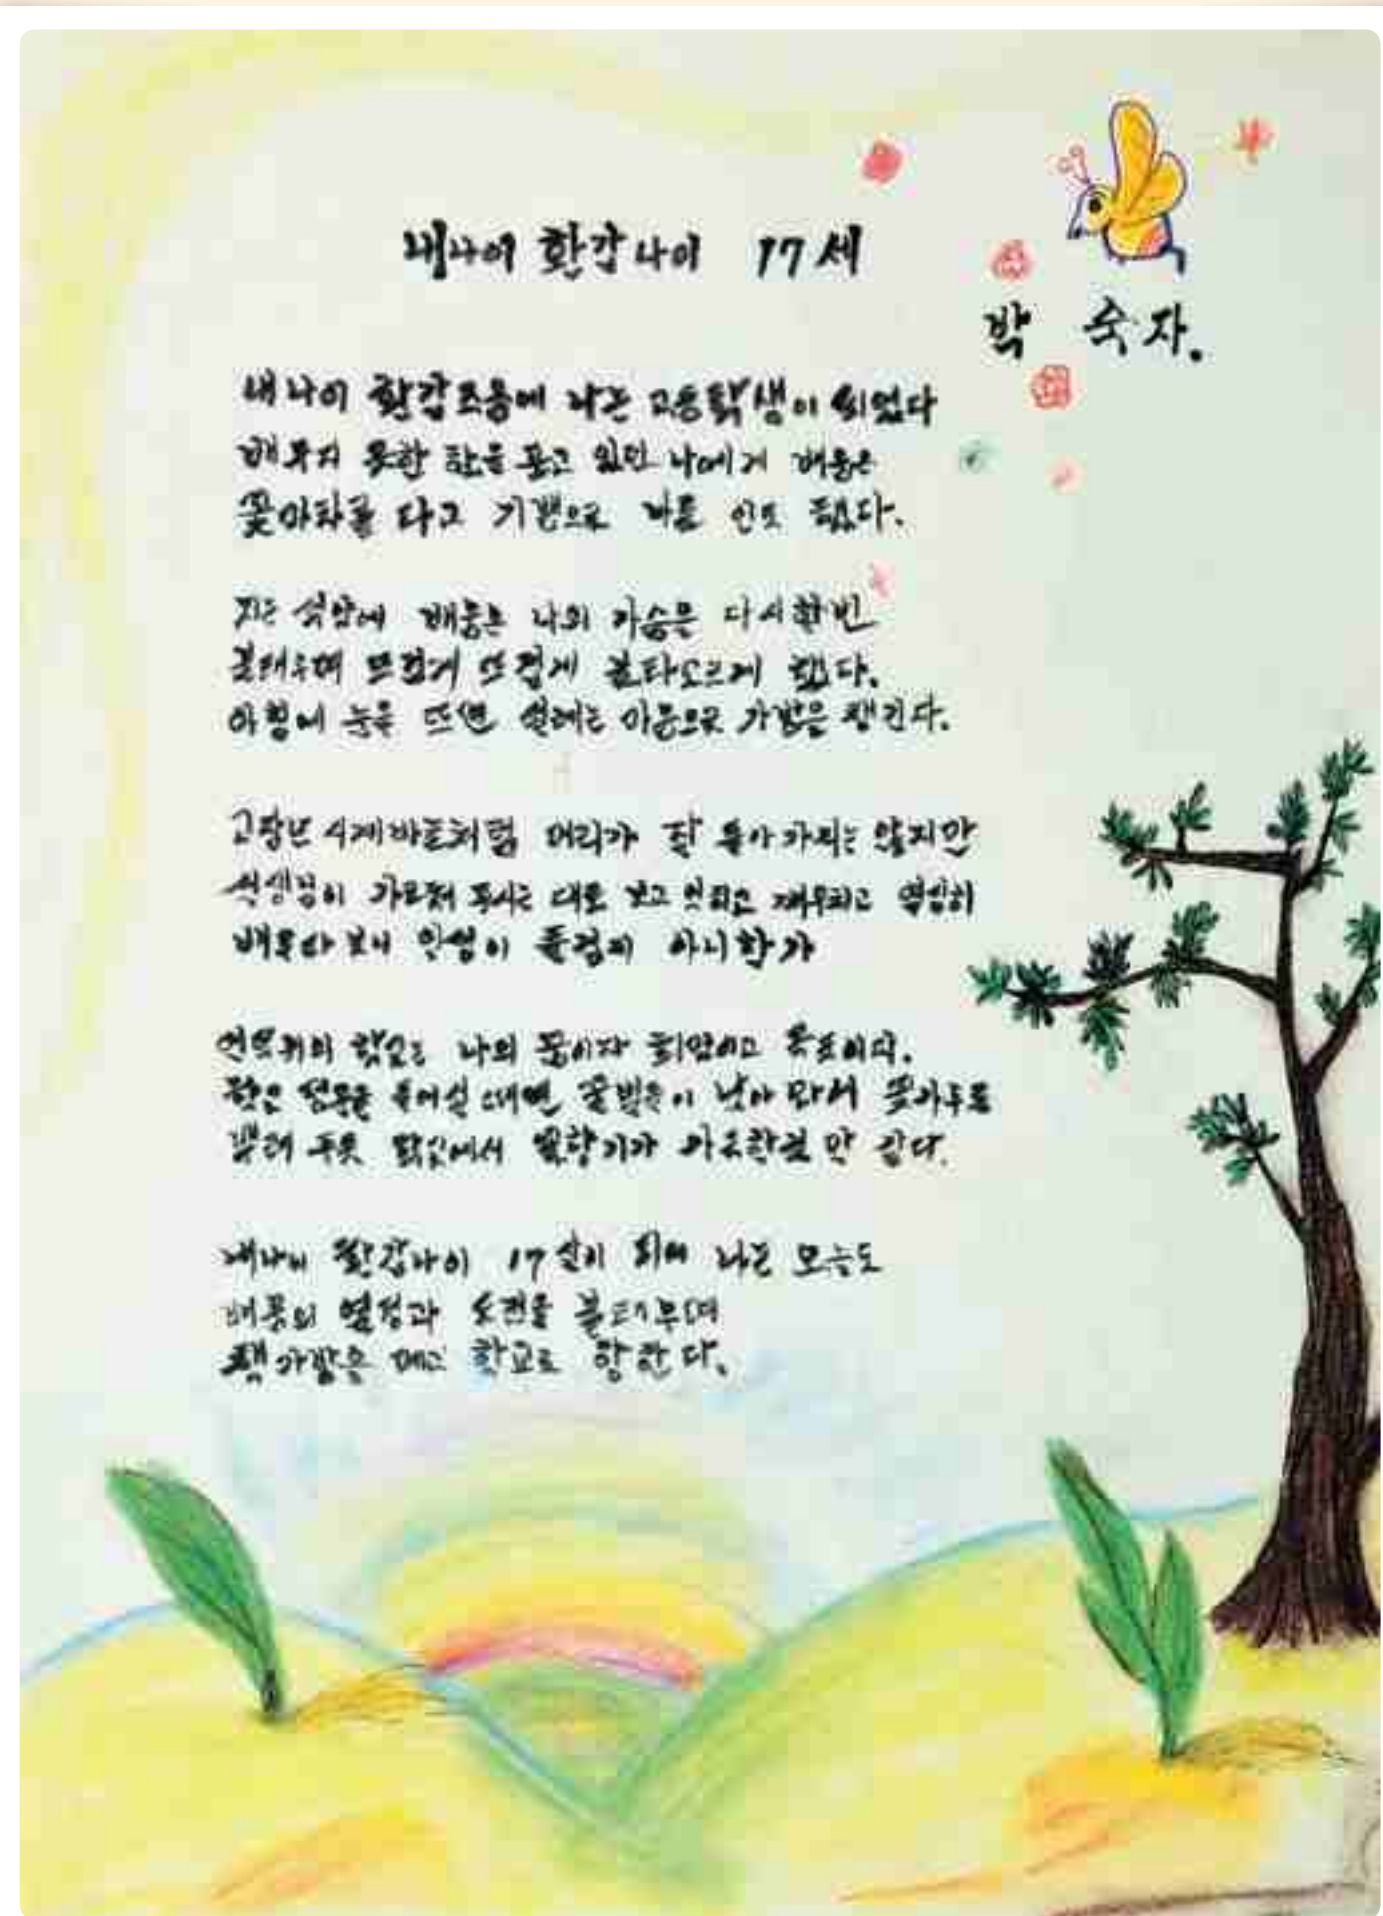 내나이 환갑나이 17세
박 숙자.
내나이 환갑즈음에 나는 고등학생이 되었다
배우지 못한 한을 품고 있던 나에게 배움은
꽃마차를 타고 기쁨으로 나를 인도 했다.
지는 석양에 배움은 나의 가슴을 다시한번
불태우며 뜨겁게 뜨겁게 불타오르게 했다.
아침에 눈을 뜨면 설레는 마음으로 가방을 챙긴다.
고장난 시계바늘처럼 머리가 잘 돌아가지는 않지만
선생님이 가르쳐 주시는 대로 보고 익히고 깨우치고 열심히
배우다 보니 인생이 즐겁지 아니한가
언덕위의 학교는 나의 꿈이자 희망이고 목표이다.
학교 정문을 들어설 때면 꿀벌들이 날아 와서
뿌려 주듯 학교에서 꽃향기가 만 같다.
내나이 환갑나이 17살이 되어 나는 오늘도
배움의 열정과 도전을 불태우며
책가방을 메고 학교로 향한다.